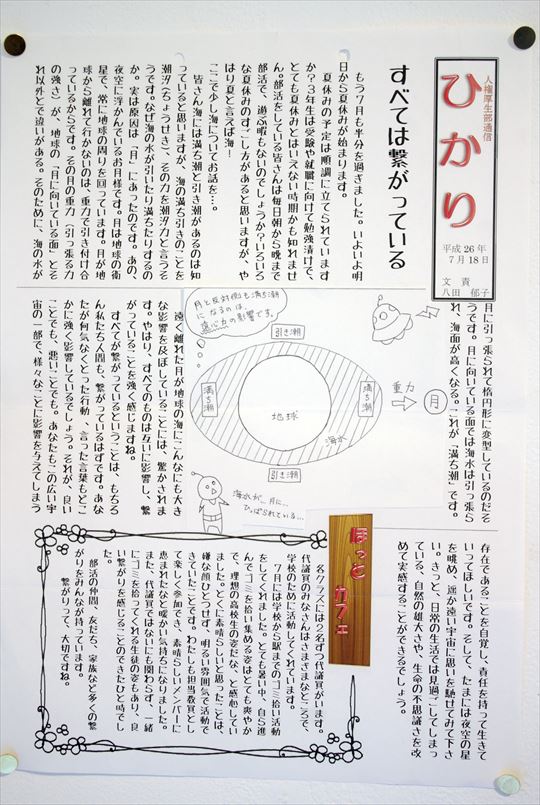 人権厚生部通信
ひかり
平成26年
7月18日
文責
八田 郁子
すべては繋がっている
もう7月も半分を過ぎました。いよいよ明
日から夏休みが始まります。
夏休みの予定は順調に立てられています
か？3年生は受験や就職に向けて勉強漬けで、
とても夏休みとはいえない時期かも知れませ
ん。部活をしている皆さんは毎日朝から晩まで
部活で、遊ぶ暇もないのでしょうか？いろいろ
な夏休みのすごし方があると思いますが、や
はり夏と言えば海！
ここで少し海についてお話を…。
皆さん海には満ち潮と引き潮があるのは知
っていると思いますが、海の満ち引きのことを
潮汐（ちょうせき）、その力を潮汐力と言うそ
うです。なぜ海の水が引いたり満ちたりするの
か。実は原因は「月」にあったのです。あの、
夜空に浮かんでいるお月様です。月は地球の衛
星で、常に地球の周りを回っています。月が地
球から離れて行かないのは、重力で引き付け合
っているからです。その月の重力（引っ張る力
の強さ）が、地球の「月に向いている面」とそ
れ以外とで違いがある。そのために、海の水が
月に引っ張られて楕円形に変型しているのだそ
うです。月に向いている面では海水は引っ張ら
れ、海面が高くなる。これが「満ち潮」です。
月と反対側も満ち潮
になるのは、
遠心力の影響です。
引き潮
満ち潮
地球
満ち潮
重力
月
海水
引き潮
海水が…月に…
ひっぱられている…
遠く離れた月が地球の海にこんなにも大き
な影響を及ぼしていることには、驚かされま
す。やはり、すべてのものは互いに影響し、繋
がっていることを強く感じますね。
すべてが繋がっているということは、もちろ
ん私たち人間も、繋がっているはずです。あな
たが何気なくとった行動、言った言葉もどこ
かに強く影響しているでしょう。それが、良い
ことでも、悪いことでも。あなたもこの広い宇
宙の一部で、様々なことに影響を与えてしまう
存在であることを自覚し、責任を持って生きて
いってほしいです。そして、たまには夜空の星
を眺め、遥か遠い宇宙に思いを馳せてみて下さ
い。きっと、日常の生活では見過ごしてしまっ
ている、自然の雄大さや、生命の不思議さを改
めて実感することができるでしょう。
ほっと カフェ
各クラスには2名ずつ代議員がいます。
代議員のみなさんはさまざまなところで、
学校のために活動してくれています。
7月には学校から駅までのゴミ拾い活動
をしてくれました。とても暑い中、自ら進
んでゴミを拾い集める姿はとても爽やか
で、理想の高校生の姿だな、と感心してい
ました。とくに素晴らしいと思ったことは、
嫌な顔ひとつせず、明るい雰囲気で活動で
きていたことです。わたしも担当教員とし
て楽しく参加でき、素晴らしいメンバーに
恵まれたなと暖かい気持ちになりました。
また、代議員ではないにも関わらず、一緒
にゴミを拾ってくれる生徒の姿もあり、良
い繋がりを感じることのできたひと時でし
た。
部活の仲間、友だち、家族など多くの繋
がりをみんなが持っています。
繋がりって、大切ですね。